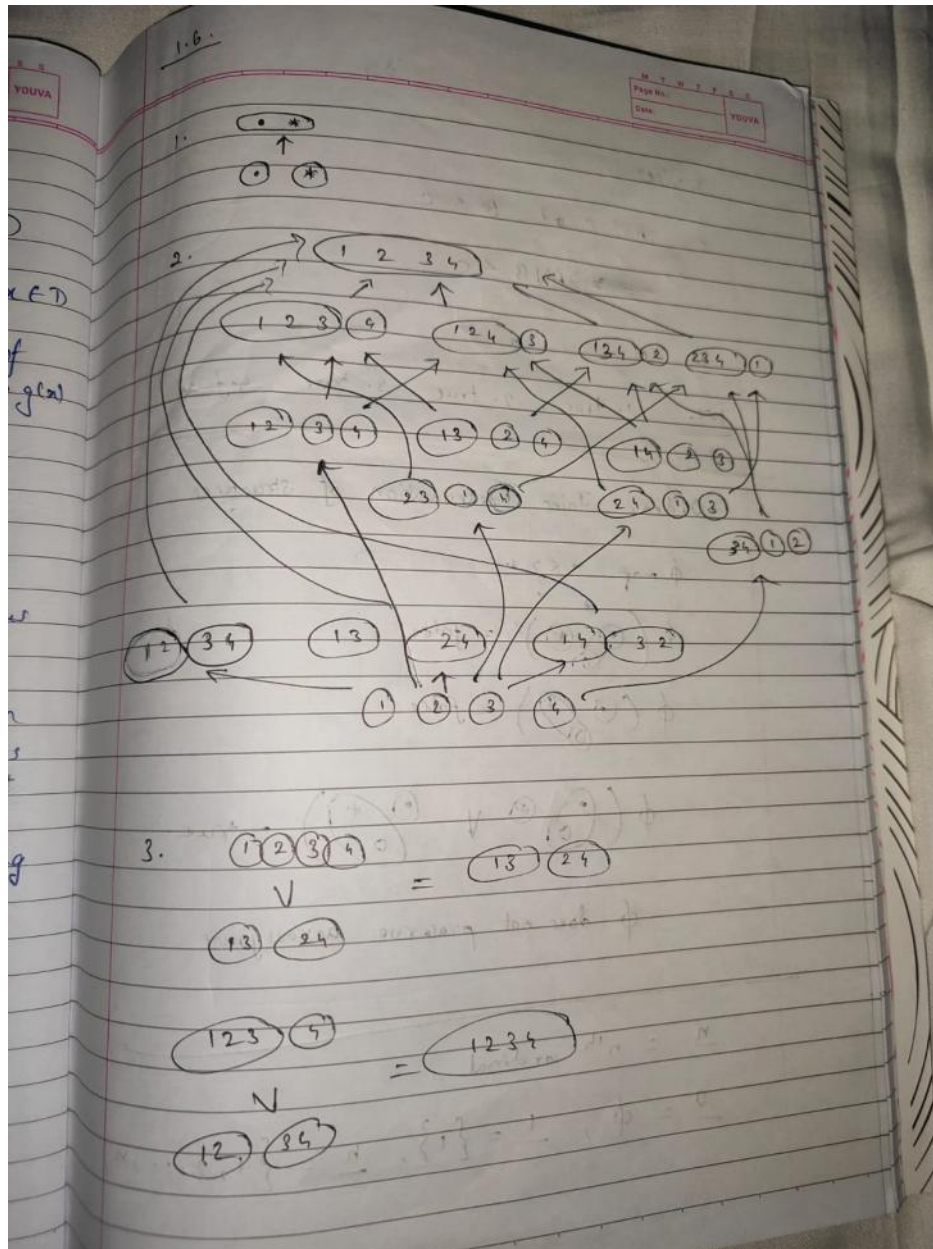 S S
YOUVA
x ∈ D
f
g(x)
g
M T W T F S S
Page No.:
Date:
YOUVA
1.6.
1. • *
• *
2. 1 2 3 4
1 2 3 4 1 2 4 3 1 3 4 2 2 3 4 1
1 2 3 4 1 3 2 4 1 4 2 3
2 3 1 4 2 4 1 3
3 4 1 2
1 2 3 4 1 3 2 4 1 4 3 2
1 2 3 4
3. 1 2 3 4
V = 1 3 2 4
1 3 2 4
1 2 3 4
V = 1 2 3 4
1 2 3 4